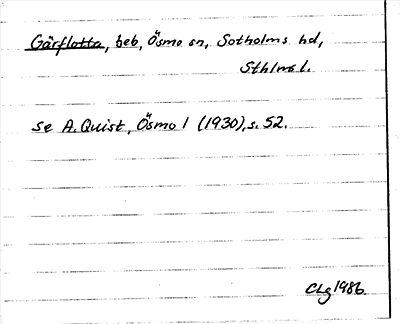 Gärflotta, beb, Ösmo sn, Sotholms hd,
Sthlms l.
se A. Quist, Ösmo 1 (1930), s. 52.
CLg 1986.